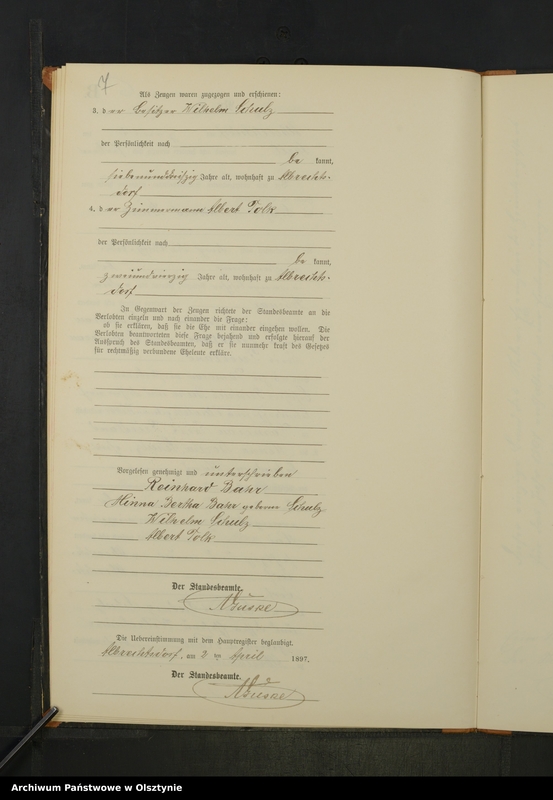 7
Als Zeugen waren zugezogen und erschienen:
3. der Besitzer Wilhelm Schulz
der Persönlichkeit nach
be kannt,
siebenunddreißig Jahre alt, wohnhaft zu Albrechts-
dorf
4. der Zimmermann Albert Tolk
der Persönlichkeit nach
be kannt,
zweiundvierzig Jahre alt, wohnhaft zu Albrechts-
dorf
In Gegenwart der Zeugen richtete der Standesbeamte an die
Verlobten einzeln und nach einander die Frage:
ob sie erklären, daß sie die Ehe mit einander eingehen wollen. Die
Verlobten beantworteten diese Frage bejahend und erfolgte hierauf der
Ausspruch des Standesbeamten, daß er sie nunmehr kraft des Gesetzes
für rechtmäßig verbundene Eheleute erkläre.
Vorgelesen genehmigt und unterschrieben
Reinhard Bahr
Minna Bertha Bahr geborene Schulz
Wilhelm Schulz
Albert Tolk
Der Standesbeamte.
Die Uebereinstimmung mit dem Hauptregister beglaubigt.
Albrechtsdorf, am 2 ten April 1897.
Der Standesbeamte.
Archiwum Państwowe w Olsztynie